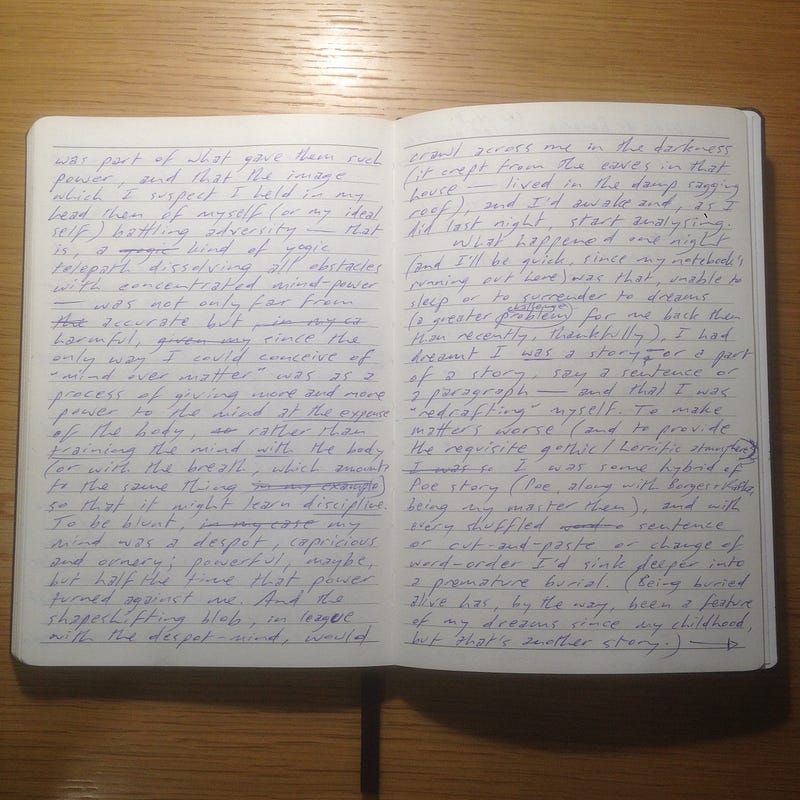 was part of what gave them such
power, and that the image
which I suspect I held in my
head then of myself (or my ideal
self) battling adversity — that
is, a yogic kind of yogic
telepath dissolving all obstacles
with concentrated mind-power
— was not only far from
the accurate but, in my ca
harmful, given my since the
only way I could conceive of
"mind over matter" was as a
process of giving more and more
power to the mind at the expense
of the body, so rather than
training the mind with the body
(or with the breath, which amounts
to the same thing in my example)
so that it might learn discipline.
To be blunt, in my case my
mind was a despot, capricious
and ornery; powerful, maybe,
but half the time that power
turned against me. And the
shapeshifting blob, in league
with the despot-mind, would
crawl across me in the darkness
(it crept from the eaves in that
house — lived in the damp sagging
roof), and I'd awake and, as I
did last night, start analysing.
What happened one night
(and I'll be quick, since my notebook's
running out here) was that, unable to
sleep or to surrender to dreams
challenge
(a greater problem for me back then
than recently, thankfully), I had
dreamt I was a story — or a part
of a story, say a sentence or
a paragraph — and that I was
"redrafting" myself. To make
matters worse (and to provide
the requisite gothic / horrific atmosphere)
I was so I was some hybrid of
Poe story (Poe, along with Borges + Kafka,
being my master then), and with
every shuffled word o sentence
or cut-and-paste or change of
word-order I'd sink deeper into
a premature burial. (Being buried
alive has, by the way, been a feature
of my dreams since my childhood,
but that's another story.) →